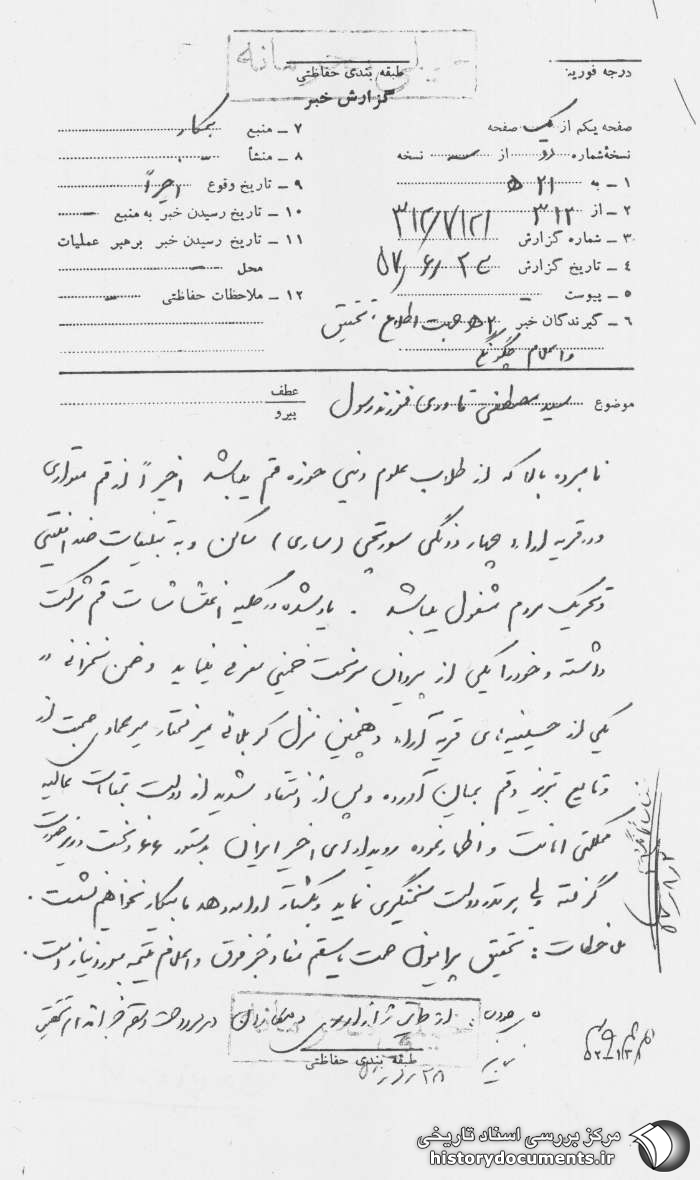 خیلی محرمانه
درجه فوریت
طبقه بندی حفاظتی
گزارش خبر
صفحه یکم از یک صفحه
نسخهٔ شماره از نسخه
۱ – به ۵ ه ۲۱
۲ – از ۳۱۲
۳ – شماره گزارش ۳۱۲/۷۱۲۱
۴ – تاریخ گزارش ۵۷/۶/۲۰
۵ – پیوست
۶ – گیرندگان خبر جهت اطلاع تحقیق
و اعلام چگونگی
۷ – منبع همکار
۸ – منشأ
۹ – تاریخ وقوع اخیراً
۱۰ – تاریخ رسیدن خبر به منبع
۱۱ – تاریخ رسیدن خبر برهبر عملیات
محل
۱۲ – ملاحظات حفاظتی
موضوع سید مصطفی فرزند رسول
عطف
پیرو
نامبرده بالا که از طلاب علوم دینی حوزه قم میباشد اخیراً از قم متواری
و در قریه اراء چهار دانگه سورتچی (ساری) ساکن و به تبلیغات ضد امنیتی
و تحریک مردم مشغول میباشد . یادشده در کلیه اغتشاشات قم شرکت
داشته و خود را یکی از پیروان سرسخت خمینی معرفی مینماید و ضمن سخنرانی در
یکی از حسینیه های قریه اراء و همچنین منزل کربلائی میر عمادی صحبت از
وقایع تبریز و قم بمیان آورده و پس از انتقاد شدید از دولت بمقامات عالیه
مملکتی اهانت و اظهار نموده رویدادهای اخیر ایران بدستور نخست وزیر صورت
گرفته ولی هر قدر دولت سختگیری نماید و بکشتار ادامه دهد ما بیکار نخواهیم نشست .
ملاحظات : تحقیق پیرامون صحت یا سقم مفاد خبر فوق و اعلام نتیجه مورد نیاز است .
از طریق ژاندارمری
طبقه بندی حفاظتی
مرکز بررسی اسناد تاریخی
historydocuments.ir